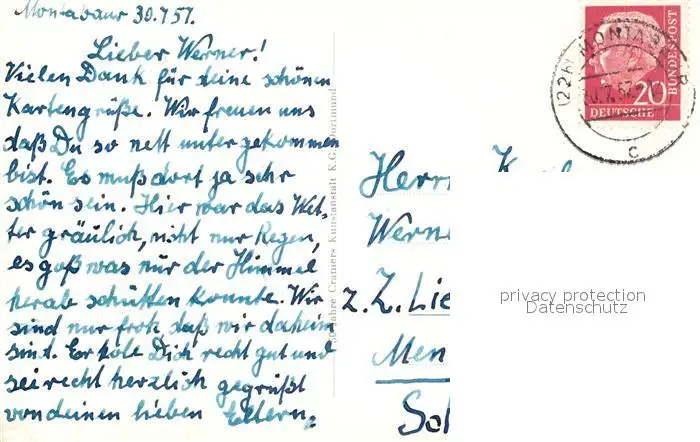 Montabaur 30.7.57.
Lieber Werner!
Vielen Dank für deine schönen
Kartengrüße. Wir freuen uns
daß Du so nett untergekommen
bist. Es muß dort ja sehr
schön sein. Hier war das Wet-
ter gräulich, nicht nur Regen,
es goß was nur der Himmel
herab schütten konnte. Wir
sind nur froh daß wir daheim
sind. Erhole Dich recht gut und
sei recht herzlich gegrüßt
von deinen lieben Eltern.
Jahre Cramers Kunstanstalt K.G. Dortmund
DEUTSCHE
BUNDESPOST
20
(22b) MONTABAUR
30.7.57
c
Herrn
Werner
z. Z.
privacy protection
Datenschutz